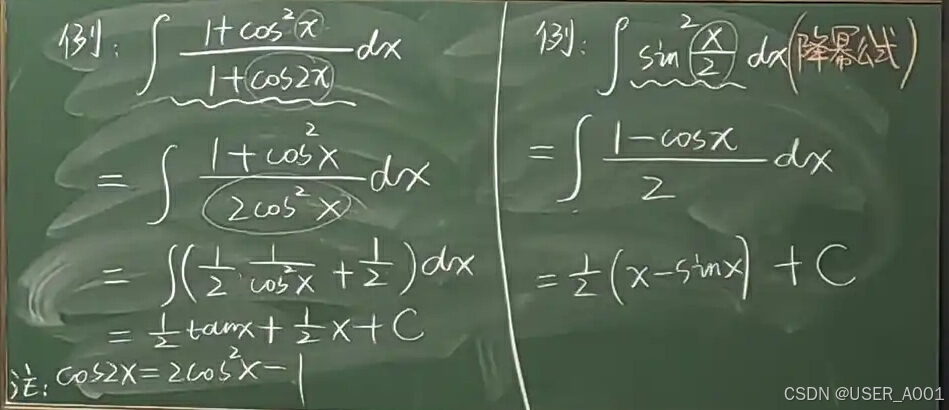 例: ∫ (1+cos²x)/(1+cos2x) dx
= ∫ (1+cos²x)/(2cos²x) dx
= ∫(1/2 · 1/cos²x + 1/2) dx
= 1/2 tanx + 1/2 x + C
注: cos2x = 2cos²x - 1
例: ∫ sin² x/2 dx (降幂公式)
= ∫ (1-cosx)/2 dx
= 1/2 (x-sinx) + C
CSDN @USER_A001